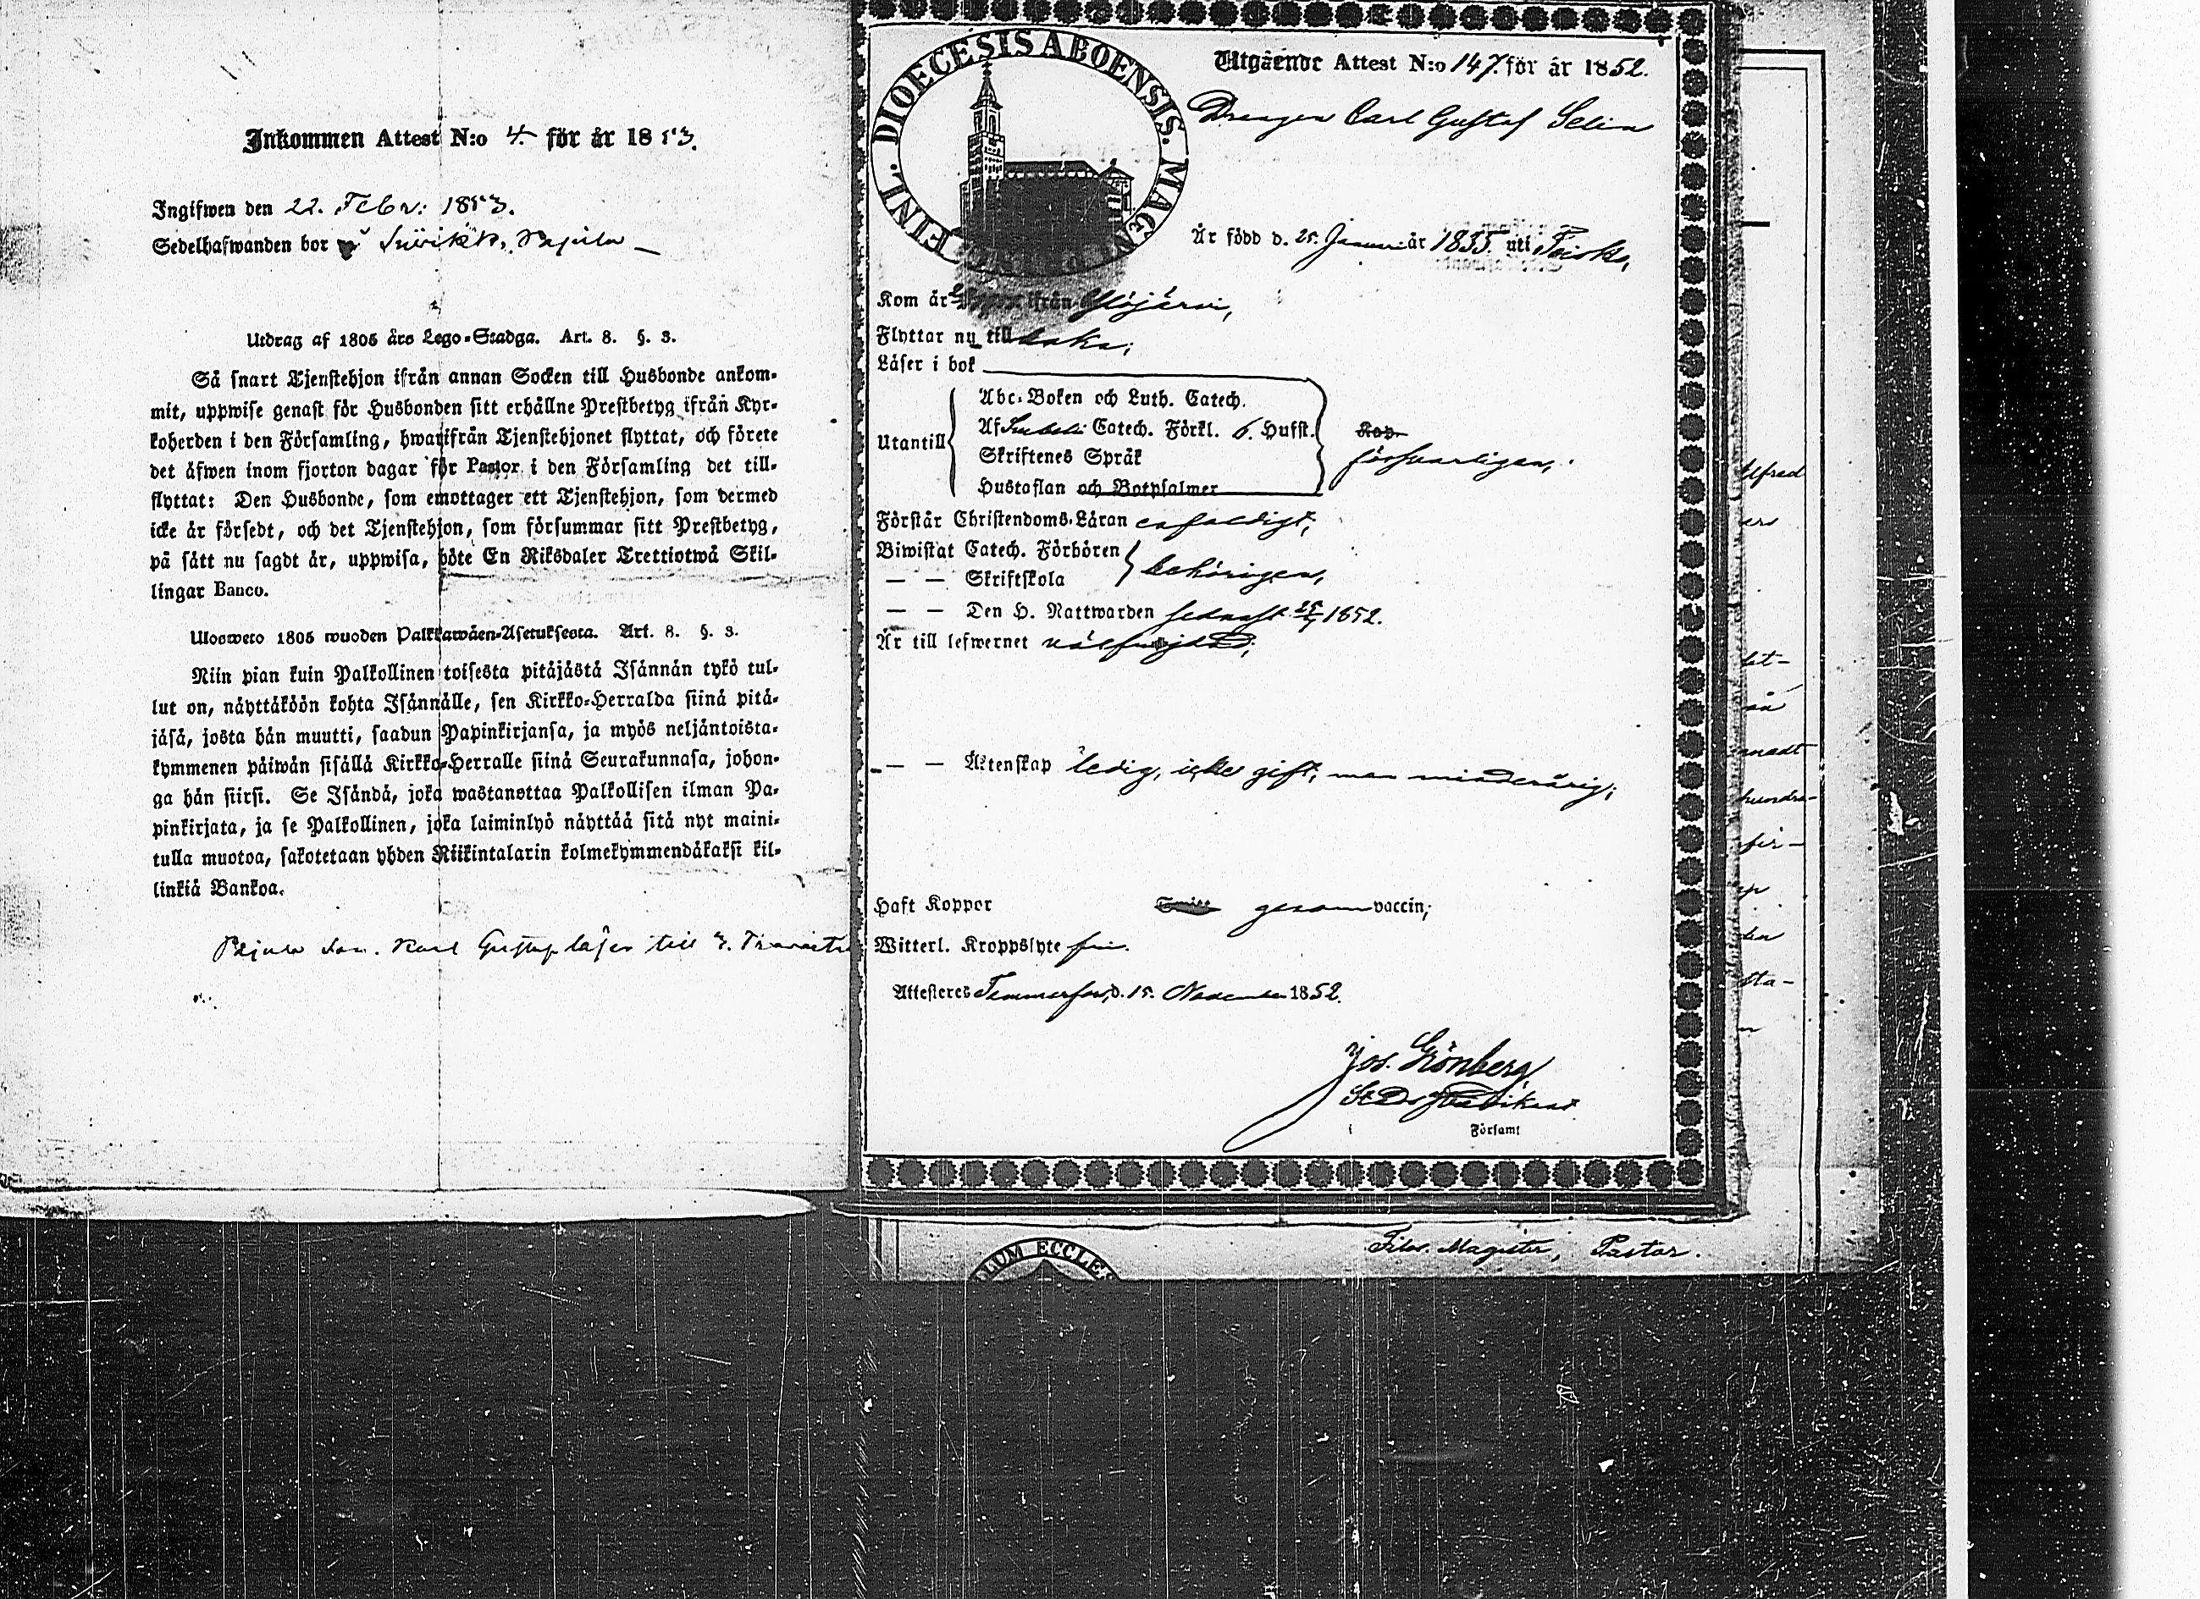 Inkommen Attest N:o 4. för år 1853.
Ingifwen den 22. Febr: 1853.
Sedelhafwanden bor
Utdrag af 1805 års Lego-Stadga. Art. 8. §. 3.
Så snart Tjenstehjon ifrån annan Socken till Husbonde ankom-
mit, uppwise genast för Husbonden sitt erhållne Prestbetyg ifrån Kyr-
koherden i den Församling, hwarifrån Tjenstehjonet flyttat, och förete
det äfwen inom fjorton dagar för Pastor i den Församling det till-
flyttat: Den Husbonde, som emottager ett Tjenstehjon, som dermed
icke är försedt, och det Tjenstehjon, som försummar sitt Prestbetyg,
på sätt nu sagdt är, uppwisa, böte En Riksdaler Trettiotwå Skil-
lingar Banco.
Ulosweto 1805 wuoden Palkkawäen-Asetuksesta. Art. 8. §. 3.
Niin pian kuin Palkollinen toisesta pitäjästä Isännän tykö tul-
lut on, näyttäköön kohta Isännälle, sen Kirkko-Herralda siinä pitä-
jäsä, josta hän muutti, saadun Papinkirjansa, ja myös neljäntoista-
kymmenen päiwän sisällä Kirkko-Herralle siinä Seurakunnasa, johon-
ga hän siirsi. Se Isändä, joka wastanottaa Palkollisen ilman Pa-
pinkirjata, ja se Palkollinen, joka laiminlyö näyttää sitä nyt maini-
tulla muotoa, sakotetaan yhden Riikintalarin kolmekymmendäkaksi kil-
linkiä Bankoa.
Karl Gustaf läser till
FINL. DIOECESIS ABOENSIS. MAGN
Utgående Attest N:o 147. för år 1852.
Drengen Carl Gustaf Selin
Är född d. 25. Januari år 1835. uti
Kom år ifrån Ylöjärvi,
Flyttar nu till baka;
Läser i bok
Abc-Boken och Luth. Catech.
Utantill Af Catech. Förkl. 6. Hufst.
Skriftenes Språk försvarligen,
Hustaflan och Botpsalmer
Förstår Christendoms-Läran enfaldigt;
Biwistat Catech. Förhören
— — Skriftskola behörigen,
— — Den H. Nattwarden sednast 1852.
Är till lefwernet välfrejdad;
— — Äktenskap ledig, icke gift, men minderårig;
Haft Koppor genom vaccin;
Witterl. Kroppslyte fri.
Attesteres Tammerfors, d. 15. November 1852.
Jos. Grönberg
Församl
LUM ECCLES
Filos. Magister, Pastor.